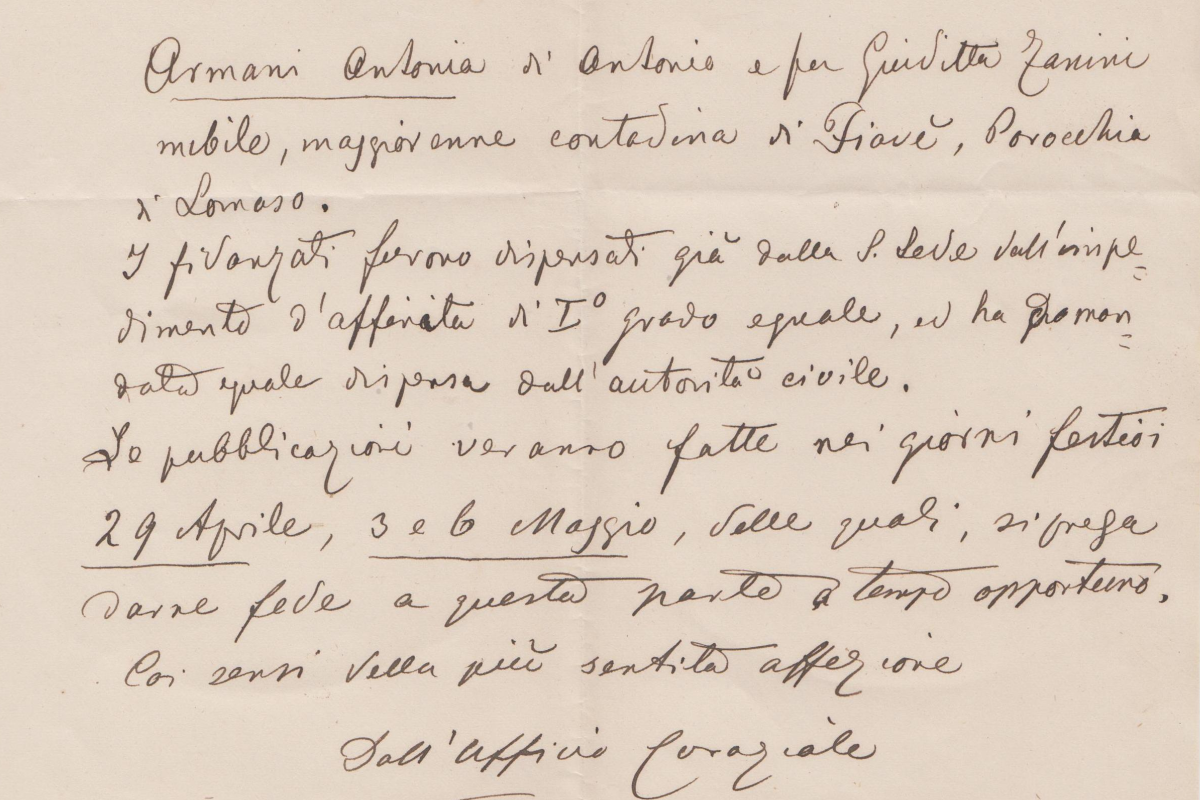 Armani Antonia di Antonio e per Giuditta Zanini
nubile, maggiorenne contadina di Fiavè, Parocchia
di Lomaso.
I fidanzati furono dispensati già dalla S. Sede dall'impe=
dimento d'affinita di I° grado eguale, ed ha doman=
data eguale dispensa dall'autorità civile.
Le pubblicazioni veranno fatte nei giorni festivi
29 Aprile, 3 e 6 Maggio, delle quali, si prega
darne fede a questa parte a tempo opportuno.
Coi sensi della più sentita affezione
Dall'Ufficio Curaziale